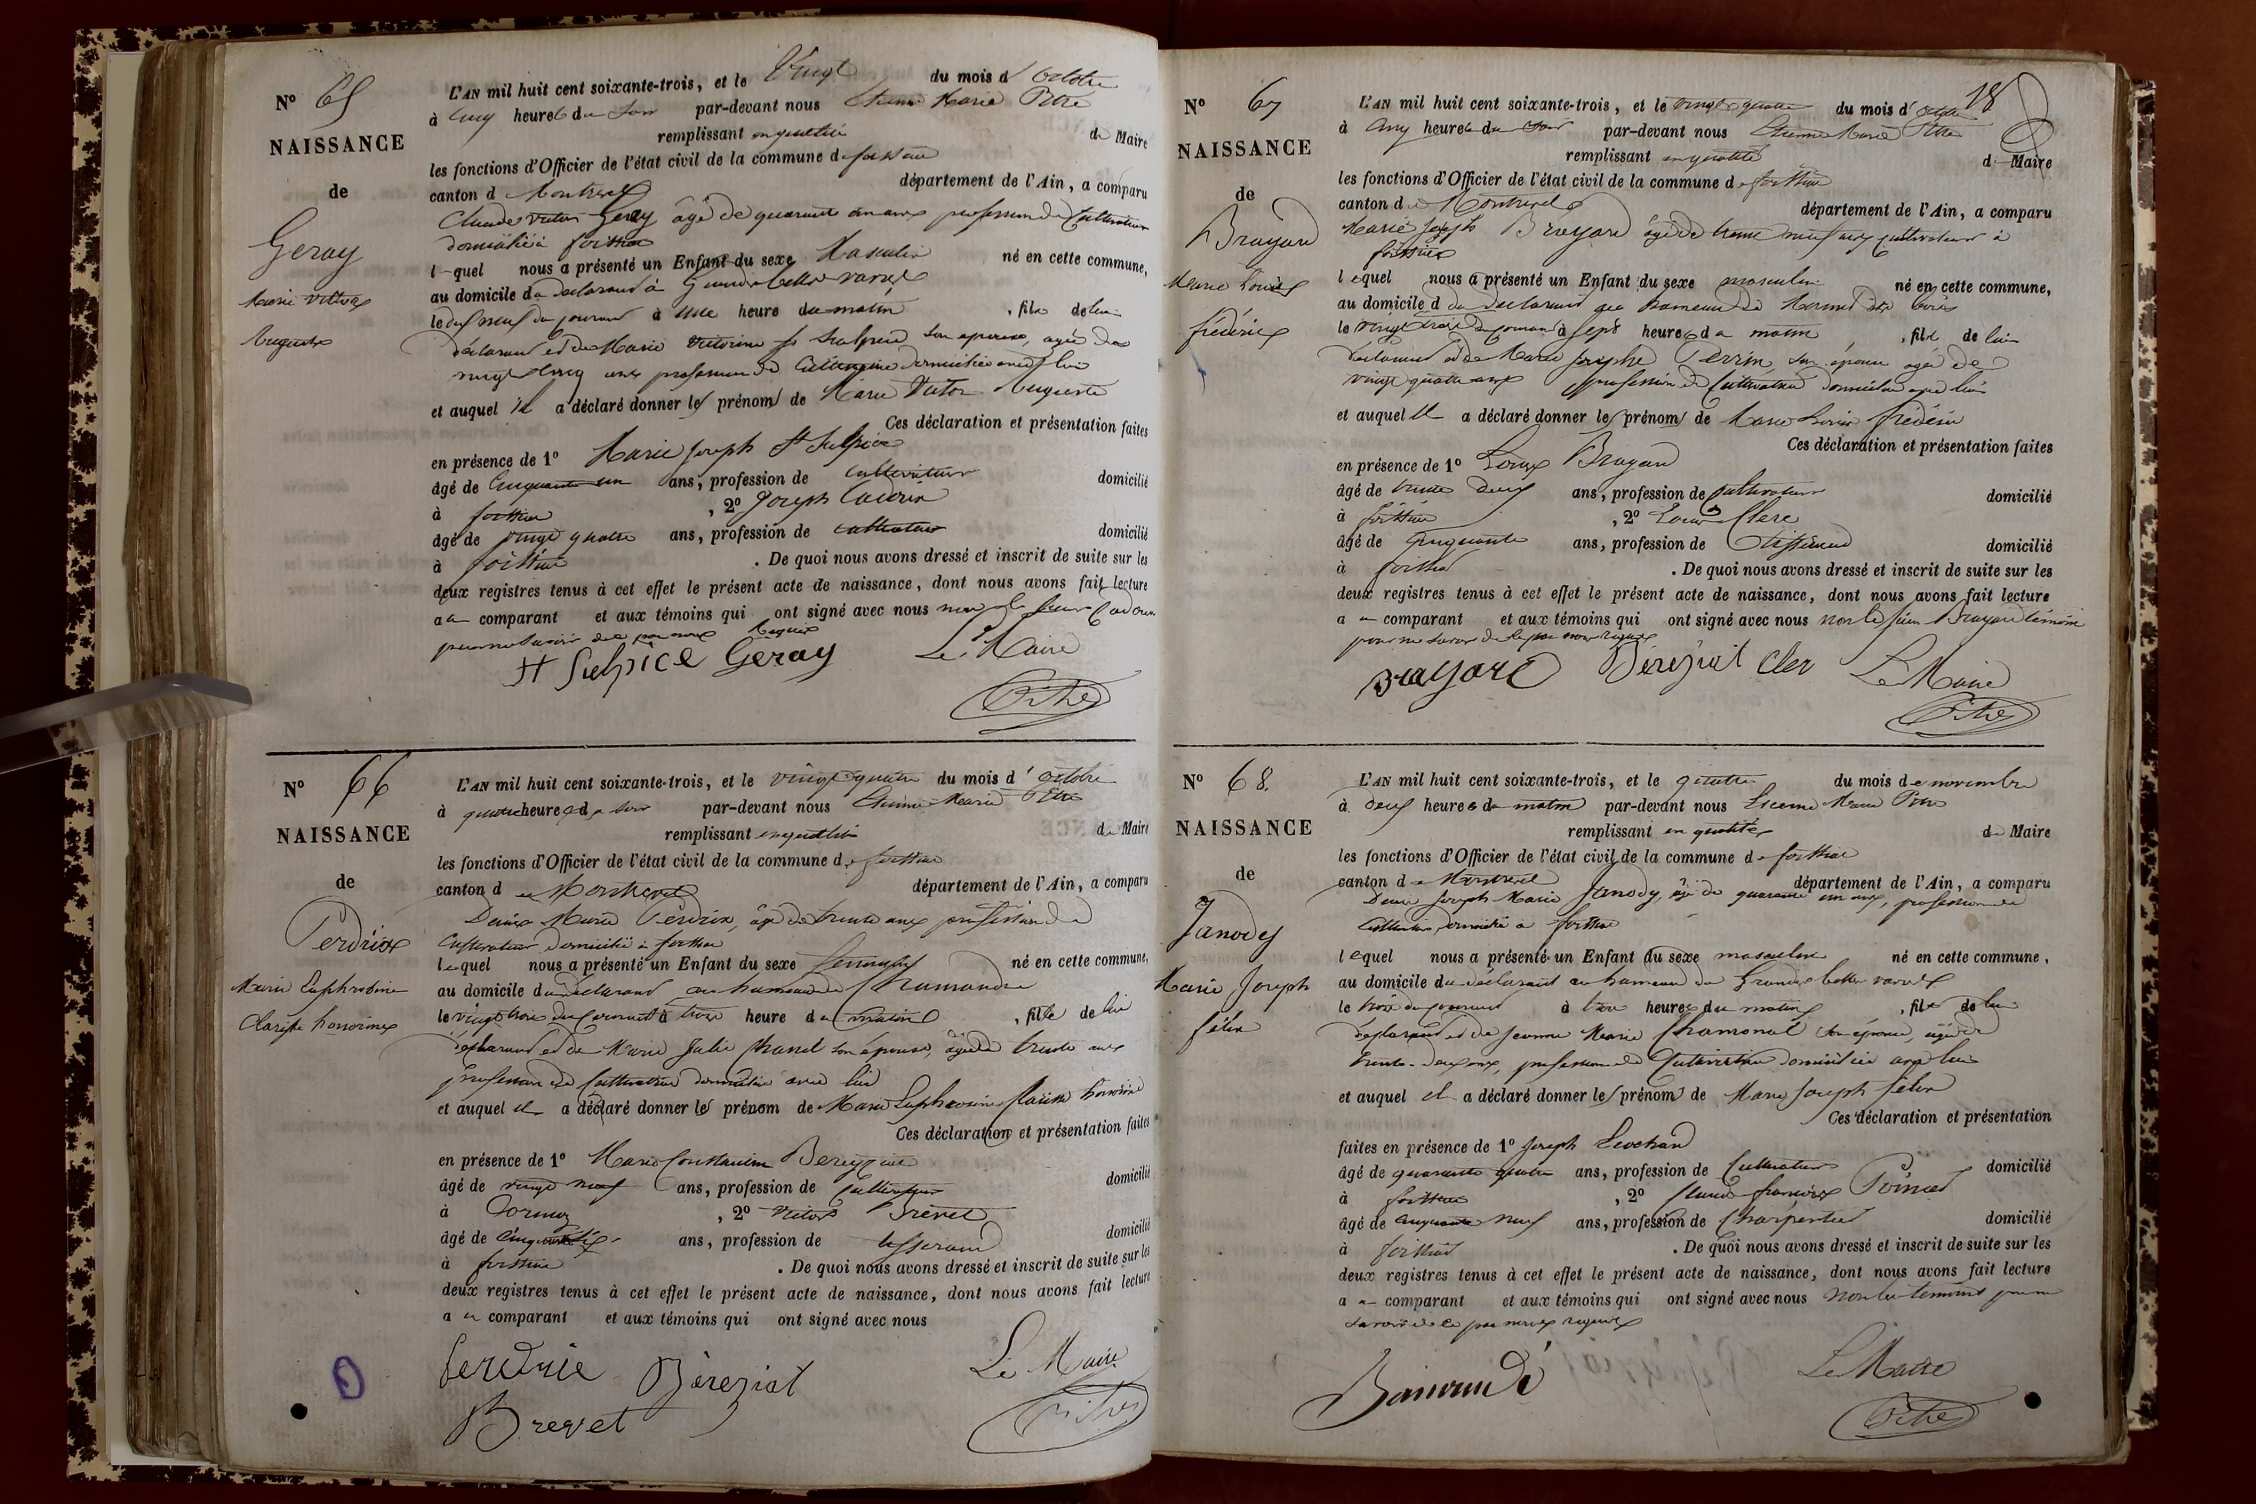 N° 65
NAISSANCE
de
Geray
Marie Victor
Auguste
L'AN mil huit cent soixante-trois, et le Vingt du mois d'Octobre
à cinq heures du soir par-devant nous Etienne Marie Pitre
remplissant en qualité de Maire
les fonctions d'Officier de l'état civil de la commune de foissiat
canton de Montrevel département de l'Ain, a comparu
Claude Victor Geray âgé de quarante un ans profession de Cultivateur
domicilié à foissiat
lequel nous a présenté un Enfant du sexe Masculin né en cette commune,
au domicile du déclarant à
le dix neuf du courant à une heure du matin, fils de lui
déclarant et de Marie Victorine St Sulpice son épouse, agée de
vingt cinq ans profession de Cultivatrice domiciliée avec lui
et auquel il a déclaré donner les prénoms de Marie Victor Auguste
Ces déclaration et présentation faites
en présence de 1° Marie Joseph St Sulpice
âgé de Cinquante un ans, profession de cultivateur domicilié
à foissiat, 2° Joseph
âgé de vingt quatre ans, profession de cultivateur domicilié
à foissiat. De quoi nous avons dressé et inscrit de suite sur les
deux registres tenus à cet effet le présent acte de naissance, dont nous avons fait lecture
au comparant et aux témoins qui ont signé avec nous non le sieur
pour ne savoir de ce par nous requis
St Sulpice Geray Le Maire
Pitre
N° 66
NAISSANCE
de
Perdrix
Marie Euphrosine
Clarisse honorine
L'AN mil huit cent soixante-trois, et le vingt quatre du mois d'octobre
à quatre heures du soir par-devant nous Etienne Marie Pitre
remplissant en qualité de Maire
les fonctions d'Officier de l'état civil de la commune de foissiat
canton de Montrevel département de l'Ain, a comparu
Denis Marie Perdrix, âgé de trente ans profession de
Cultivateur domicilié à foissiat
lequel nous a présenté un Enfant du sexe feminin né en cette commune,
au domicile du déclarant au hameau de
le vingt trois du courant à trois heure du matin, fille de lui
déclarant et de Marie Julie Chanel son épouse, agée de trente ans
profession de Cultivatrice domiciliée avec lui
et auquel il a déclaré donner les prénom de Marie Euphrosine Clarisse honorine
Ces déclaration et présentation faites
en présence de 1° Marie Constantin Bereyziat
âgé de vingt neuf ans, profession de Cultivateur domicilié
à Cormoz, 2° Victor Brevet
âgé de cinquante six ans, profession de tisserand domicilié
à foissiat. De quoi nous avons dressé et inscrit de suite sur les
deux registres tenus à cet effet le présent acte de naissance, dont nous avons fait lecture
au comparant et aux témoins qui ont signé avec nous
Perdrix Béreziat Le Maire
Brevet Pitre
18
N° 67
NAISSANCE
de
Brayard
Marie Louis
frédéric
L'AN mil huit cent soixante-trois, et le vingt quatre du mois d'octobre
à cinq heures du soir par-devant nous Etienne Marie Pitre
remplissant en qualité de Maire
les fonctions d'Officier de l'état civil de la commune de foissiat
canton de Montrevel département de l'Ain, a comparu
Marie Joseph Brayard âgé de trente neuf ans cultivateur à
foissiat
lequel nous a présenté un Enfant du sexe masculin né en cette commune,
au domicile du déclarant au hameau de
le vingt trois du courant à sept heures du matin, fils de lui
déclarant et de Marie Josephe Perrin son épouse agée de
vingt quatre ans profession de Cultivatrice domiciliée avec lui
et auquel il a déclaré donner les prénoms de Marie Louis frédéric
Ces déclaration et présentation faites
en présence de 1° Louis Brayard
âgé de trente deux ans, profession de cultivateur domicilié
à foissiat, 2° Louis Clerc
âgé de cinquante ans, profession de domicilié
à foissiat. De quoi nous avons dressé et inscrit de suite sur les
deux registres tenus à cet effet le présent acte de naissance, dont nous avons fait lecture
au comparant et aux témoins qui ont signé avec nous non le sieur Brayard témoin
pour ne savoir de ce par nous requis
Brayard Béreziat Cler Le Maire
Pitre
N° 68.
NAISSANCE
de
Janody
Marie Joseph
félix
L'AN mil huit cent soixante-trois, et le quatre du mois de novembre
à deux heures du matin par-devant nous Etienne Marie Pitre
remplissant en qualité de Maire
les fonctions d'Officier de l'état civil de la commune de foissiat
canton de Montrevel département de l'Ain, a comparu
Denis Joseph Marie Janody, âgé de quarante un ans, profession de
Cultivateur, domicilié à foissiat
lequel nous a présenté un Enfant du sexe masculin né en cette commune,
au domicile du déclarant au hameau de
le trois du courant à trois heures du matin, fils de lui
déclarant et de Jeanne Marie Chamonal son épouse, agée de
trente-deux ans, profession de Cultivatrice domiciliée avec lui
et auquel il a déclaré donner les prénoms de Marie Joseph félix
Ces déclaration et présentation
faites en présence de 1° Joseph
âgé de quarante quatre ans, profession de Cultivateur domicilié
à foissiat, 2° Claude françois
âgé de cinquante neuf ans, profession de Charpentier domicilié
à foissiat. De quoi nous avons dressé et inscrit de suite sur les
deux registres tenus à cet effet le présent acte de naissance, dont nous avons fait lecture
au comparant et aux témoins qui ont signé avec nous non les témoins pour ne
savoir de ce par nous requis
Le Maire
Pitre